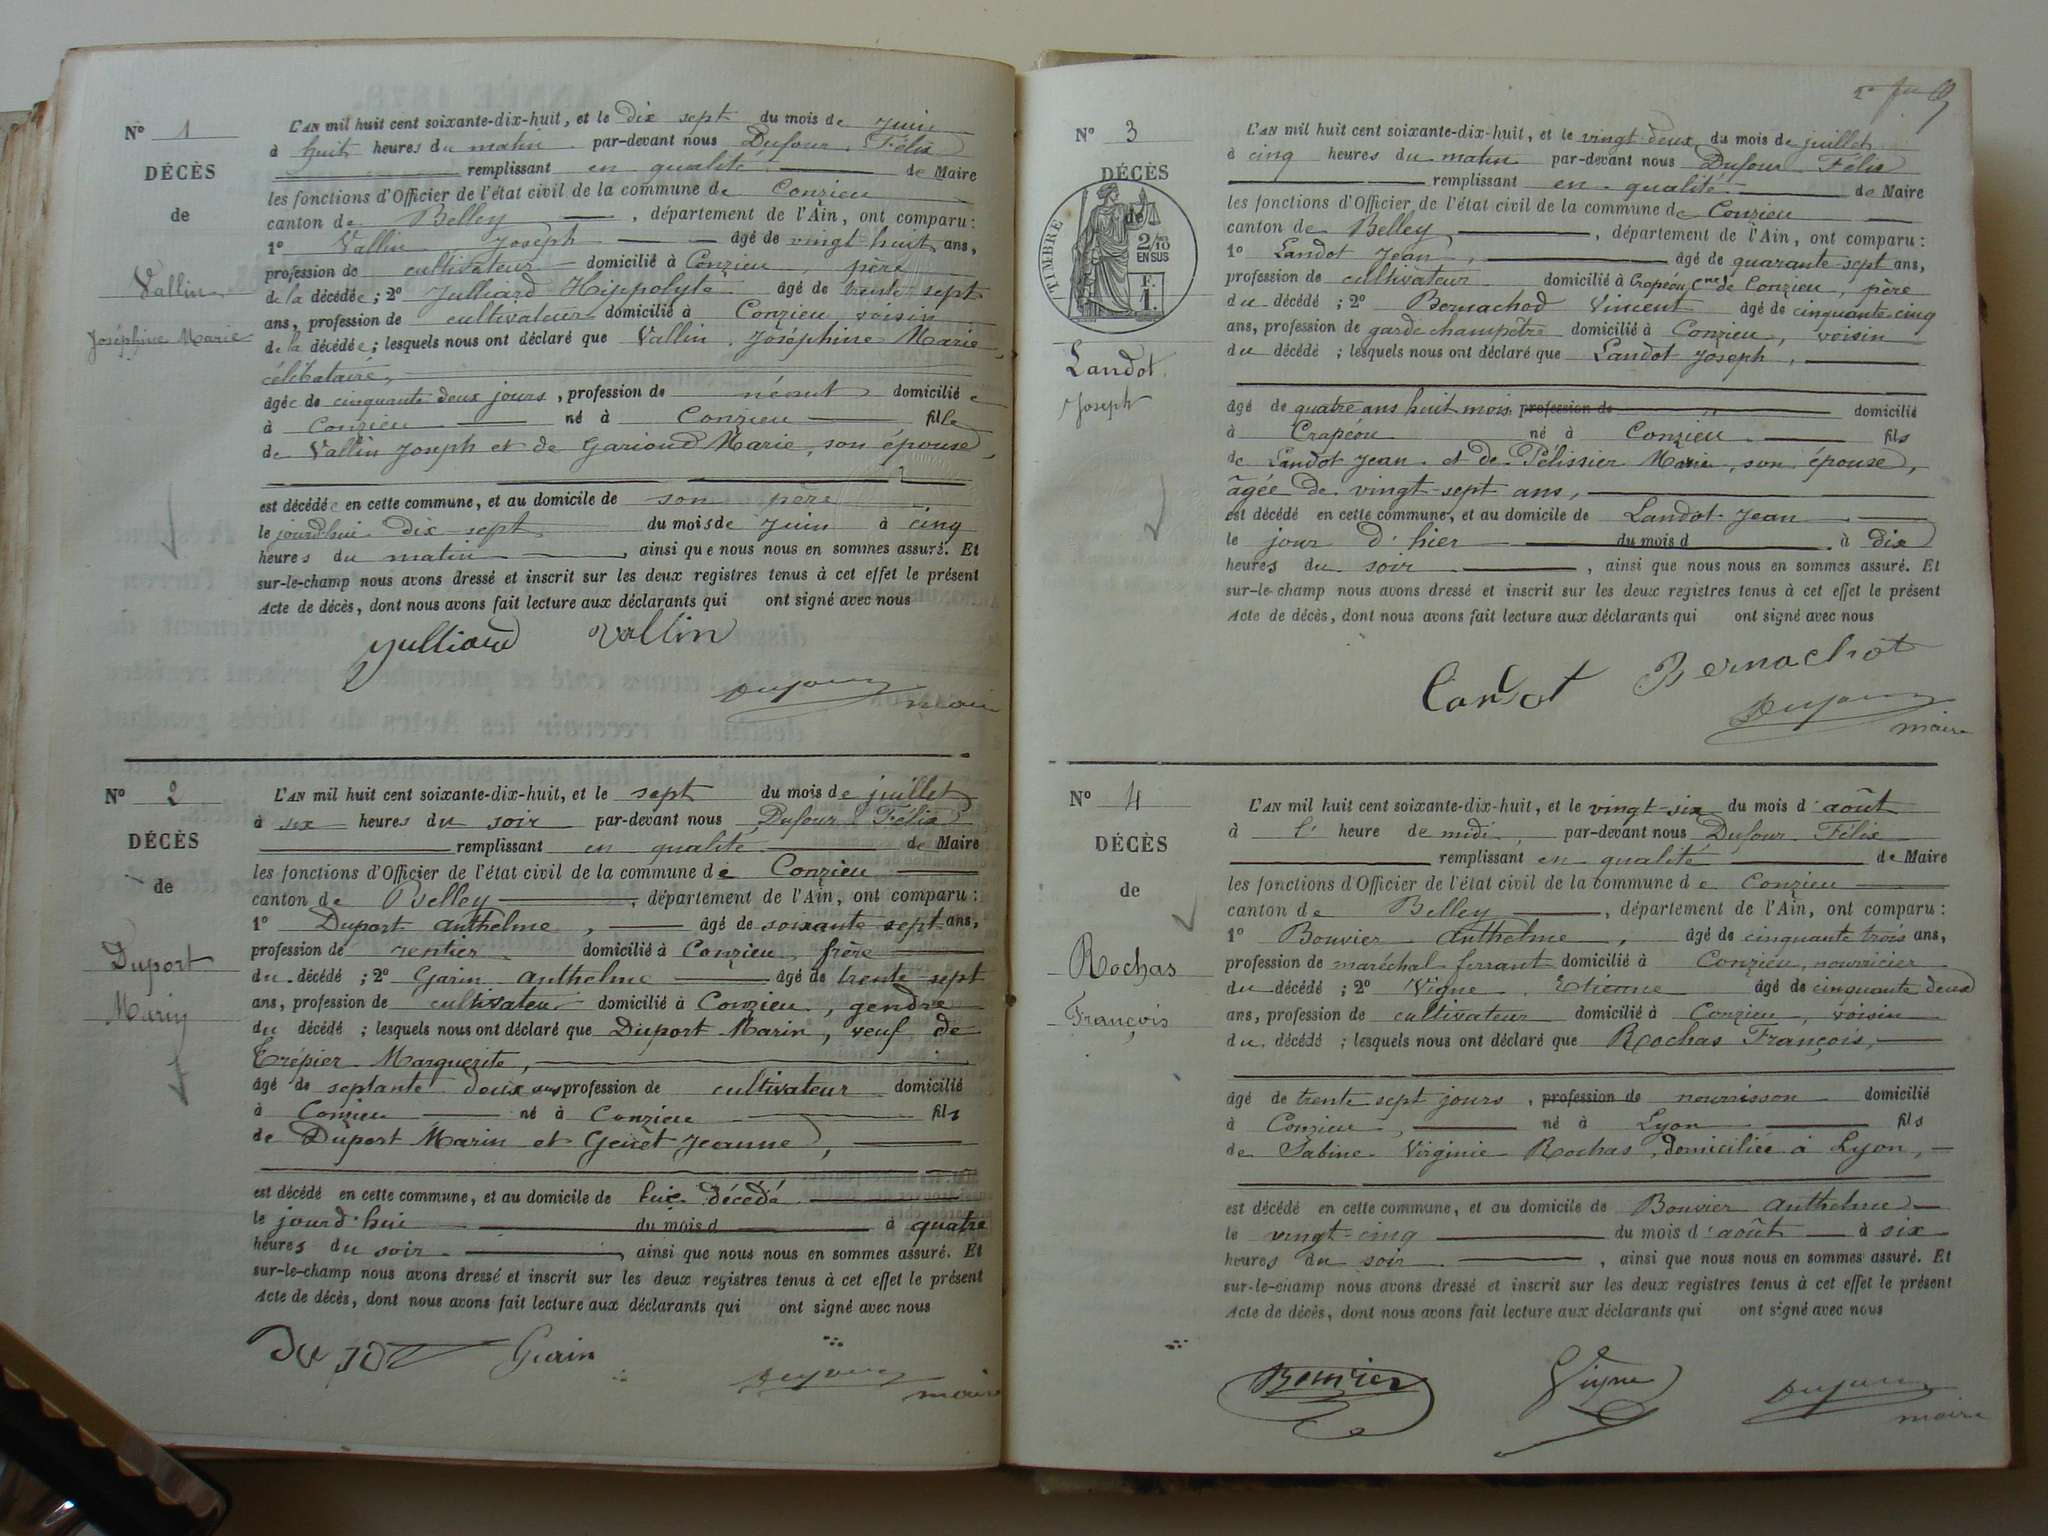 N° 1
DÉCÈS
de
Vallin
Joséphine Marie
L'AN mil huit cent soixante-dix-huit, et le dix sept du mois de juin
à huit heures du matin par-devant nous Dufour Félix
remplissant en qualité de Maire
les fonctions d'Officier de l'état civil de la commune de Conzieu
canton de Belley, département de l'Ain, ont comparu :
1° Vallin Joseph âgé de vingt huit ans,
profession de cultivateur domicilié à Conzieu, père
de la décédée ; 2° Julliard Hippolyte âgé de trente sept
ans, profession de cultivateur domicilié à Conzieu voisin
de la décédée ; lesquels nous ont déclaré que Vallin Joséphine Marie,
célibataire,
âgée de cinquante deux jours, profession de néant domiciliée
à Conzieu né à Conzieu fille
de Vallin Joseph et de Gariond Marie, son épouse,
est décédée en cette commune, et au domicile de son père
le jourdhui dix sept du mois de juin à cinq
heures du matin, ainsi que nous nous en sommes assuré. Et
sur-le-champ nous avons dressé et inscrit sur les deux registres tenus à cet effet le présent
Acte de décès, dont nous avons fait lecture aux déclarants qui ont signé avec nous
Julliard Vallin
Dufour maire
N° 2
DÉCÈS
de
Duport
Marin
L'AN mil huit cent soixante-dix-huit, et le sept du mois de juillet
à six heures du soir par-devant nous Dufour Félix
remplissant en qualité de Maire
les fonctions d'Officier de l'état civil de la commune de Conzieu
canton de Belley, département de l'Ain, ont comparu :
1° Duport Anthelme, âgé de soixante sept ans,
profession de rentier domicilié à Conzieu frère
du décédé ; 2° Garin Anthelme âgé de trente sept
ans, profession de cultivateur domicilié à Conzieu, gendre
du décédé ; lesquels nous ont déclaré que Duport Marin, veuf de
Trépier Marguerite,
âgé de septante deux ans profession de cultivateur domicilié
à Conzieu né à Conzieu fils
de Duport Marin et Jeanne,
est décédé en cette commune, et au domicile de lui décédé
le jourd'hui du mois d à quatre
heures du soir, ainsi que nous nous en sommes assuré. Et
sur-le-champ nous avons dressé et inscrit sur les deux registres tenus à cet effet le présent
Acte de décès, dont nous avons fait lecture aux déclarants qui ont signé avec nous
Garin
Dufour maire
N° 3
DÉCÈS
de
TIMBRE
2/10
EN SUS
F.
1.
Landot
Joseph
L'AN mil huit cent soixante-dix-huit, et le vingt deux du mois de juillet
à cinq heures du matin par-devant nous Dufour Félix
remplissant en qualité de Maire
les fonctions d'Officier de l'état civil de la commune de Conzieu
canton de Belley, département de l'Ain, ont comparu :
1° Landot Jean, âgé de quarante sept ans,
profession de cultivateur domicilié à Crapéou, Cne de Conzieu, père
du décédé ; 2° Bernachod Vincent âgé de cinquante cinq
ans, profession de garde champêtre domicilié à Conzieu, voisin
du décédé ; lesquels nous ont déclaré que Landot Joseph,
âgé de quatre ans huit mois profession de domicilié
à Crapéou né à Conzieu fils
de Landot Jean et de Pélissier Marie, son épouse,
âgée de vingt-sept ans,
est décédé en cette commune, et au domicile de Landot Jean
le jour d'hier du mois d à dix
heures du soir, ainsi que nous nous en sommes assuré. Et
sur-le-champ nous avons dressé et inscrit sur les deux registres tenus à cet effet le présent
Acte de décès, dont nous avons fait lecture aux déclarants qui ont signé avec nous
Landot Bernachot
Dufour maire
N° 4
DÉCÈS
de
Rochas
François
L'AN mil huit cent soixante-dix-huit, et le vingt-six du mois d'août
à l' heure de midi, par-devant nous Dufour Félix
remplissant en qualité de Maire
les fonctions d'Officier de l'état civil de la commune de Conzieu
canton de Belley, département de l'Ain, ont comparu :
1° Bouvier Anthelme, âgé de cinquante trois ans,
profession de maréchal ferrant domicilié à Conzieu, nourricier
du décédé ; 2° Vigne Etienne âgé de cinquante deux
ans, profession de cultivateur domicilié à Conzieu, voisin
du décédé ; lesquels nous ont déclaré que Rochas François,
âgé de trente sept jours, profession de nourrisson domicilié
à Conzieu, né à Lyon fils
de Sabine Virginie Rochas, domiciliée à Lyon,
est décédé en cette commune, et au domicile de Bouvier Anthelme
le vingt-cinq du mois d'août à six
heures du soir, ainsi que nous nous en sommes assuré. Et
sur-le-champ nous avons dressé et inscrit sur les deux registres tenus à cet effet le présent
Acte de décès, dont nous avons fait lecture aux déclarants qui ont signé avec nous
Bouvier Vigne Dufour
maire